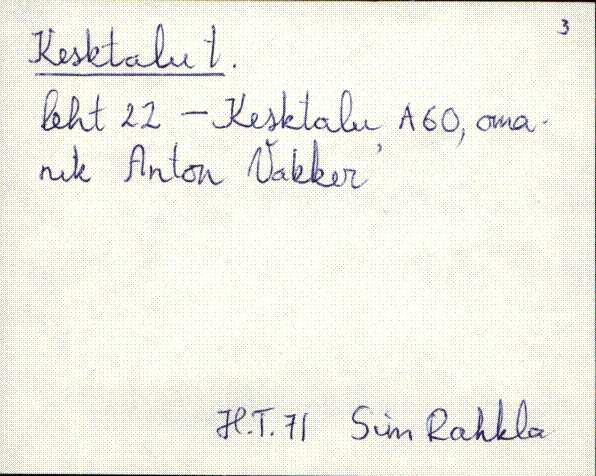 3
Kesktalu t.
leht 22 – Kesktalu A60, oma-
nik Anton Vakker
H.T. 71 Sim Rahkla